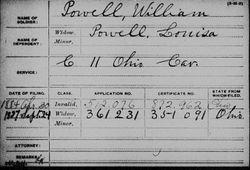 NAME OF SOLDIER: Powell, William
NAME OF DEPENDENT: Widow, Powell, Louisa
Minor,
SERVICE: C 11 Ohio Cav.
DATE OF FILING. CLASS. APPLICATION NO. CERTIFICATE NO. STATE FROM WHICH FILED.
1884 Apr 30 Invalid, 512.076 872.962 Ohio
1887 Sept 24 Widow, 361231 351.091 Ohio
Minor,
ATTORNEY:
REMARKS: